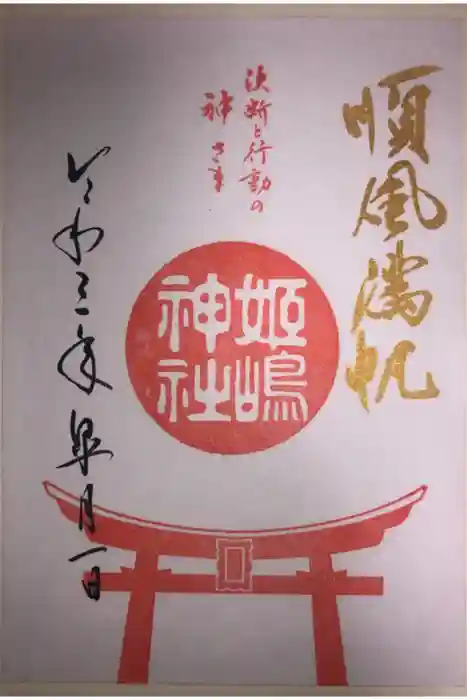 順風満帆
決断と行動の
神さま
姫嶋
神社
令わ三年皐月一日